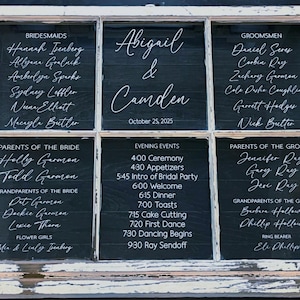 BRIDESMAIDS
Hannah Isenberg
Allyana Graluck
Amberlyn Sparks
Sydney Loffler
Nena Elliott
Micayla Butler
Abigail
&
Camden
October 25, 2025
GROOMSMEN
Daniel Sores
Corbin Ray
Zachary Garmon
Cole Duke Coughlin
Garrett Hodges
Nick Butler
PARENTS OF THE BRIDE
Holly Garmon
Todd Garmon
GRANDPARENTS OF THE BRIDE
Pat Garmon
Jackie Garmon
Lexie Thorn
FLOWER GIRLS
& Isenberg
EVENING EVENTS
4:00 Ceremony
4:30 Appetizers
5:45 Intro of Bridal Party
6:00 Welcome
6:15 Dinner
7:00 Toasts
7:15 Cake Cutting
7:20 First Dance
7:30 Dancing Begins
9:30 Ray Sendoff
PARENTS OF THE GROOM
Jennifer Ray
Gary Ray
Jere Ray
GRANDPARENTS OF THE
Barbara
Phillip
RING BEARER
Eli Phillips